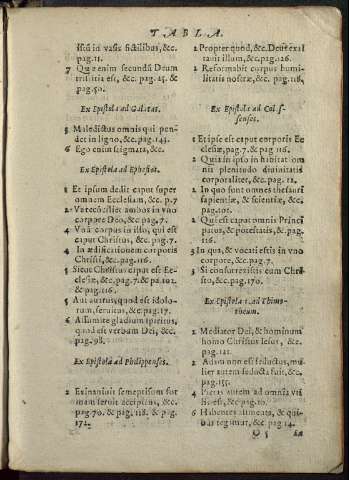 TABLA.
istũ in vasis fictilibus, &c.
pag. 11.
7 Quæ enim secundũ Deum
tristitia est, &c. pag. 25. &
pag. 50.
Ex Epistola ad Galatas.
3 Maledictus omnis qui pen-
det in ligno, &c. pag. 143.
6 Ego enim stigmata, &c.
Ex Epistola ad Ephesios.
1 Et ipsum dedit caput super
omnem Ecclesiam, &c. p. 7
2 Vt recõciliet ambos in vno
corpore Deo, &c. pag. 7.
4 Vnũ corpus in illo, qui est
caput Christus, &c. pag. 7.
4 In ædificationem corporis
Christi, &c. pag. 116.
5 Sicut Christus caput est Ec-
clesiæ, &c. pag. 7. & pa. 102.
& pag. 116.
5 Aut auarus, quod est idolo-
rum, seruitus, &c. pag. 17.
6 Assumite gladium spiritus,
quod est verbum Dei, &c.
pag. 98.
Ex Epistola ad Philippenses.
2 Exinaniuit semetipsum for
mam serui accipiens, &c.
pag. 70. & pag. 118. & pag.
172.
2 Propter quod, &c. Deus exal
tauit illum, &c. pag. 126.
3 Reformabit corpus humi-
litatis nostræ, &c. pag. 118.
Ex Epistola ad Colos-
senses.
1 Et ipse est caput corporis Ec
clesiæ, pag. 7. & pag. 116.
2 Quia in ipso inhabitat om
nis plenitudo diuinitatis
corporaliter, &c. pag. 12.
2 In quo sunt omnes thesauri
sapientiæ, & scientiæ, &c.
pag. 101.
2 Qui est caput omnis Princi
patus, & potestatis, &c. pag.
116.
3 In qua, & vocati estis in vno
corpore, &c. pag. 7.
3 Si consurrexistis cum Chri
sto, &c. pag. 170.
Ex Epistola 1. ad Thimo-
theum.
2 Mediator Dei, & hominum
homo Christus Iesus, &c.
pag. 121.
2 Adam non est seductus, mu
lier autem seducta fuit, &c.
pag. 155.
4 Pietas autem ad omnia vti
lis est, &c. pag. 10.
6 Habentes alimenta, & qui-
bus tegimur, &c. pag. 14.
Q 5